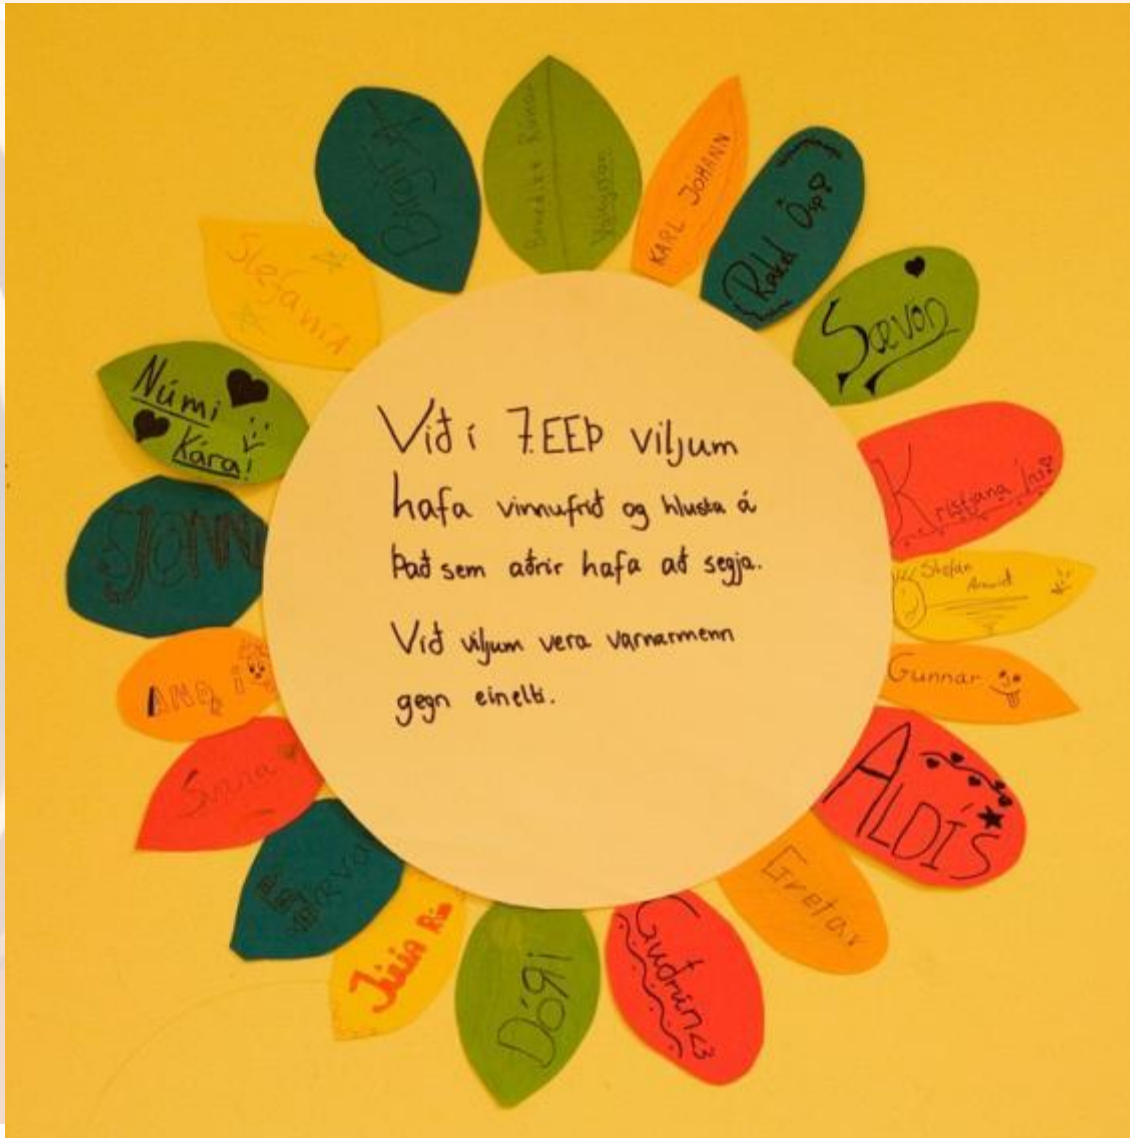 Við í 7.EEÞ viljum
hafa vinnufrið og hlusta á
Það sem aðrir hafa að segja.
Við viljum vera varnarmenn
gegn einelti.
Benedikt Rúnar
KARL JÓHANN
Rakel Ösp
Sævon
Kristjana
Stefán
Gunnar
ALDÍS
Gretar
Guðrún<3
DÓRI
Júlía Rún
Svana
JONNI
Númi
Kára!
Stefanía
Birgitta